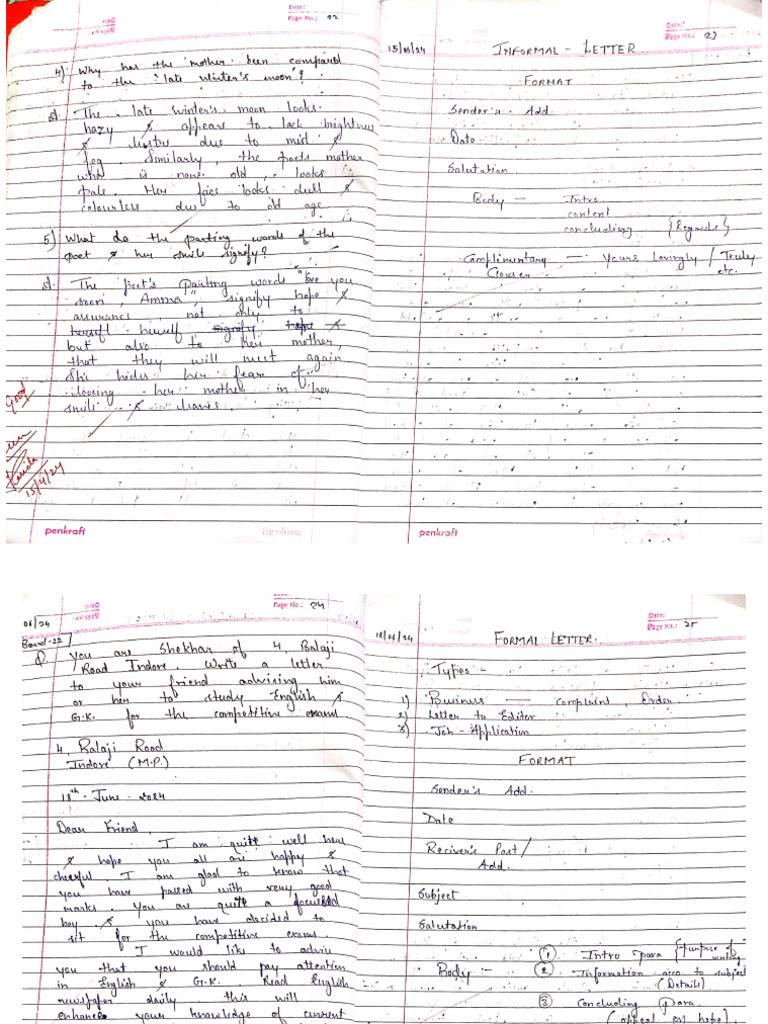 Date:
Page No.: 22
4) Why has the mother been compared
to the 'late winter's moon'?
The late winter's moon looks
hazy & appears to lack brightness
& lustre due to mist &
fog. Similarly, the poets mother
who is now old, looks
pale. Her face looks dull &
colourless due to old age
5) What do the parting words of the
poet & her smile signify?
The poet's parting words "see you
soon, Amma", signify hope &
assurance, not only to
herself
but also to her mother,
that they will meet again
She hides her fear of
loosing her mother in her
smile & leaves.
Good
15/4/24
penkraft
Date:
Page No.: 23
15/06/24
INFORMAL - LETTER
FORMAT
Sender's Add.
Date
Salutation
Body - Intro
content
concluding {Regards}
Complimentary - Yours Lovingly / Truly
Closer etc.
penkraft
Page No.: 24
06/24
Board-22
Q. You are Shekhar of 4, Balaji
Road Indore. Write a letter
to your friend advising him
or her to study English &
G.K. for the competitive exams
4, Balaji Road
Indore (M.P.)
18th June - 2024
Dear Friend,
I am quite well here
& hope you all are happy &
cheerful. I am glad to know that
you have passed with very good
marks. You are quite a focused
boy. & you have decided to
sit for the competitive exams.
I would like to advice
you that you should pay attention
in English & G.K. Read English
newspaper daily this will
enhance your knowledge of current
Date:
Page No.: 25
18/06/24
FORMAL LETTER.
Types -
1) Business - Complaint, Order
2) Letter to Editor
3) Job - Application
FORMAT
Sender's Add.
Date
Reciver's Post/
Add.
Subject
Salutation
Body :- 1 Intro para {purpose of writing
2 Information acco to subject
(Details)
3 Concluding Para.
(appeal or hope)